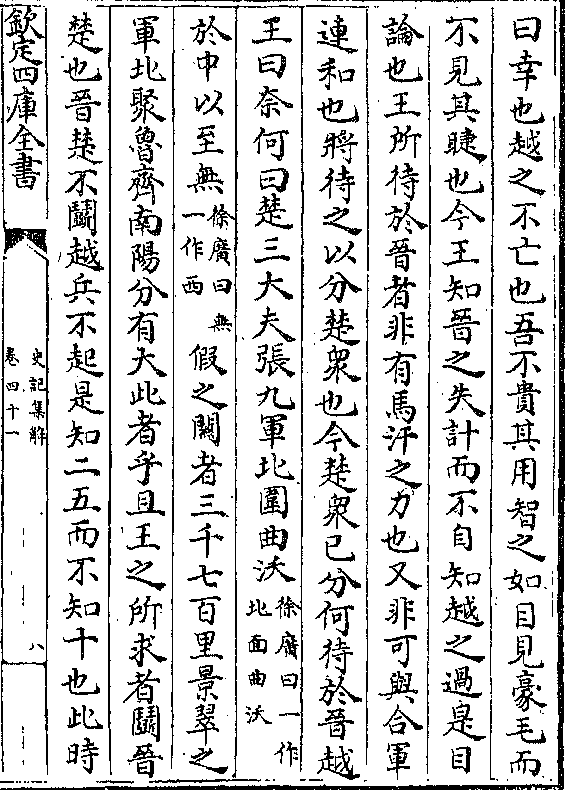 曰幸也越之不亡也吾不貴其用智之如目見豪毛而
不見其睫也今王知晉之失計而不自知越之過是目
論也王所待於晉者非有馬汗之力也又非可與合軍
連和也將待之以分楚衆也今楚衆已分何待於晉越
王曰奈何曰楚三大夫張九軍北圍曲沃徐廣曰一作北面曲沃
於中以至無徐廣曰無一作西假之關者三千七百里景翠之
軍北聚魯齊南陽分有大此者乎且王之所求者鬭晉
楚也晉楚不鬭越兵不起是知二五而不知十也此時
欽定四庫全書 史記集解 卷四十一 八